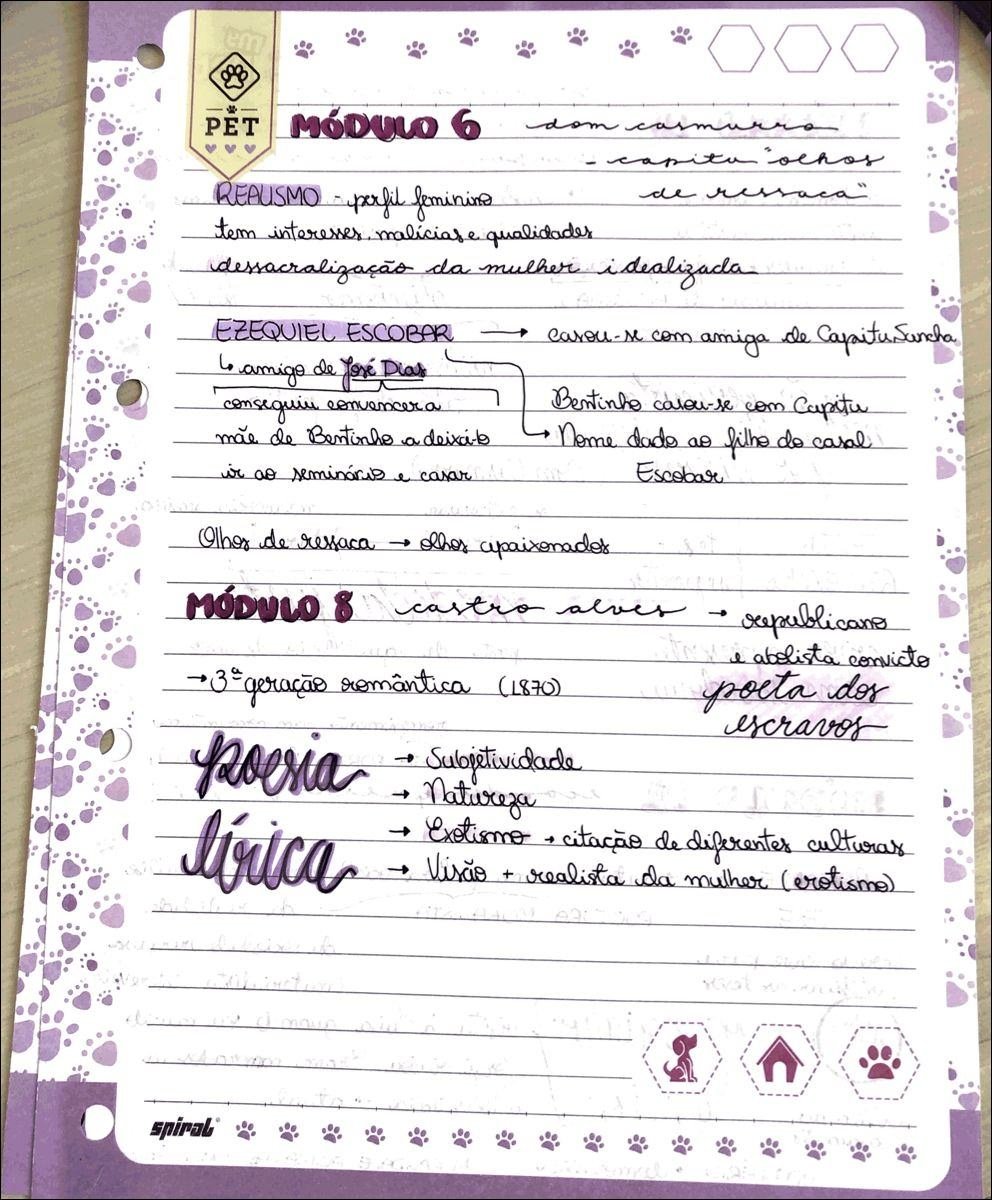 PET
MÓDULO 6 dom casmurro
- capitu "olhos
de ressaca"
REALISMO - perfil feminino
tem interesses, malícias e qualidades
dessacralização da mulher idealizada
EZEQUIEL ESCOBAR → casou-se com amiga de Capitu Sancha
↳ amigo de José Dias
conseguiu convencer a Bentinho casou-se com Capitu
mãe de Bentinho a deixá-lo → Nome dado ao filho do casal
ir ao seminário e casar Escobar
Olhos de ressaca → olhos apaixonados
MÓDULO 8 castro alves → republicano
e abolista convicto
→ 3ª geração romântica (1870) poeta dos
escravos
poesia → Subjetividade
→ Natureza
lírica → Exotismo → citação de diferentes culturas
→ Visão + realista da mulher (erotismo)
spiral